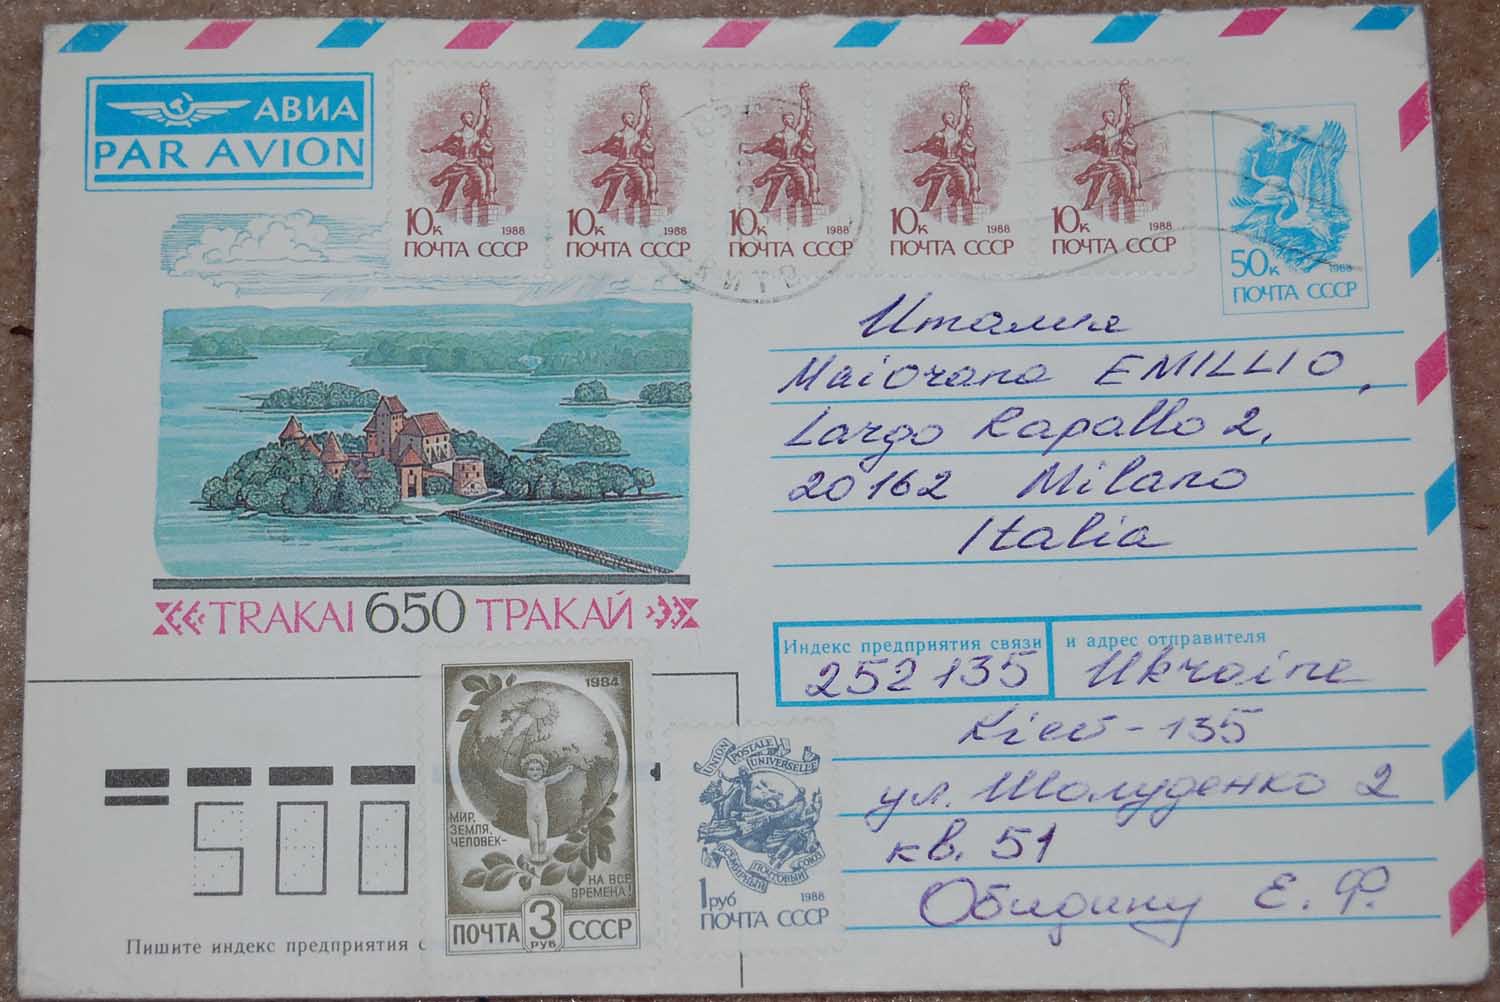 АВИА
PAR AVION
10к 1988
ПОЧТА СССР
10к 1988
ПОЧТА СССР
10к 1988
ПОЧТА СССР
10к 1988
ПОЧТА СССР
10к 1988
ПОЧТА СССР
50к 1988
ПОЧТА СССР
Италия
Maiorana EMILLIO,
Largo Rapallo 2,
20162 Milano
Italia
TRAKAI 650 ТРАКАЙ
Индекс предприятия связи и адрес отправителя
252135 Ukraine
Kiev-135
ул. Шолуденко 2
кв. 51
Обидину Е. Ф.
1984
МИР,
ЗЕМЛЯ,
ЧЕЛОВЕК-
НА ВСЕ
ВРЕМЕНА!
ПОЧТА 3 РУБ СССР
UNION POSTALE UNIVERSELLE
ВСЕМИРНЫЙ ПОЧТОВЫЙ СОЮЗ
1руб 1988
ПОЧТА СССР
Пишите индекс предприятия с